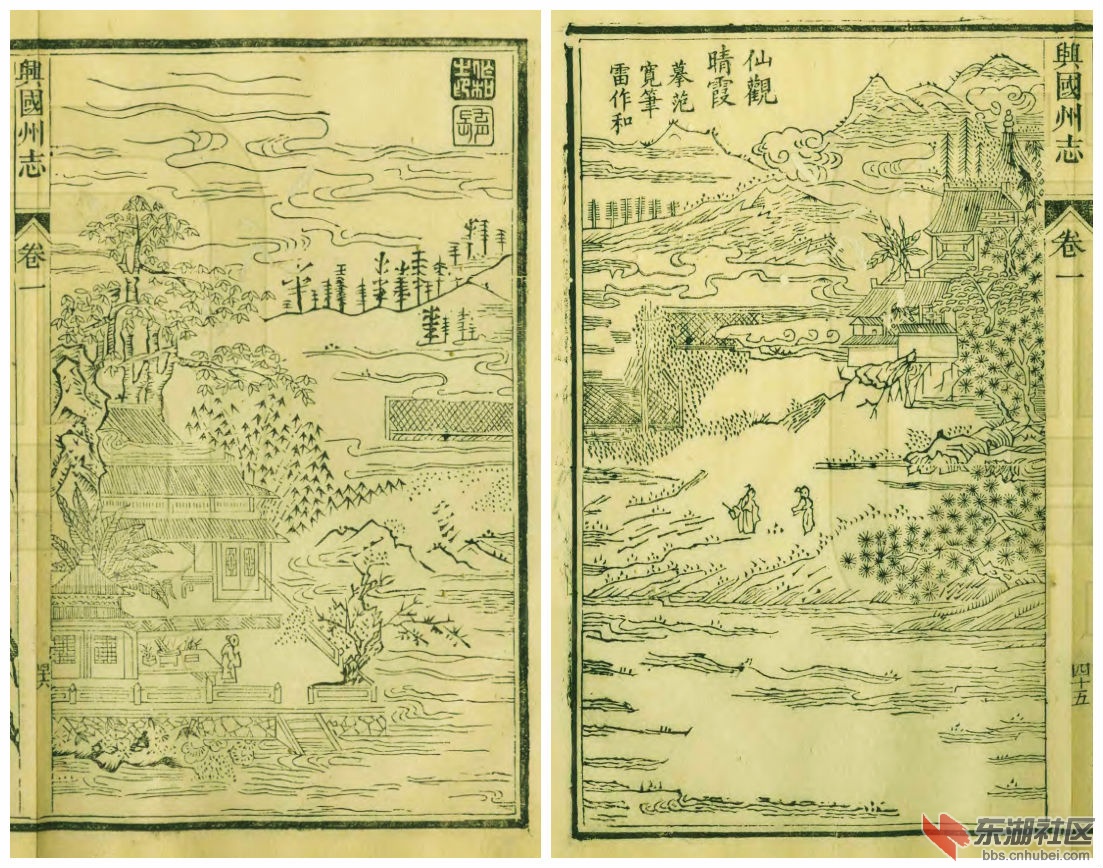 興國州志
卷一
仙觀
晴霞
摹范
寬筆
雷作和
興國州志
卷一
四十五
东湖社区
bbs.cnhubei.com